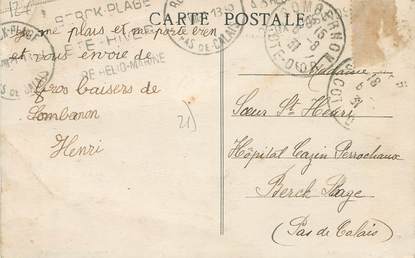 12 €
CARTE POSTALE
BERCK-PLAGE
ÉTÉ - HIVER
CURE HELIO-MARINE
PAS DE CALAIS
SOMBERNON
CÔTE-D'OR
Je me plais et me porte bien
et vous envoie de
Gros baisers de
Sombernon
Henri
21)
Madame
Soeur St Henri
Hôpital Cazin Perrochaux
Berck Plage
(Pas de Calais)